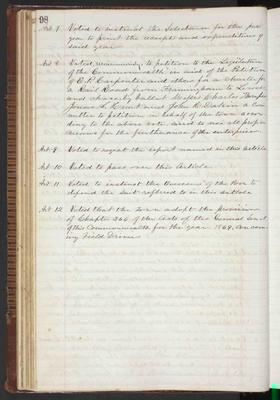 98
Art 7 Voted to instruct the Selectmen for this year
to print the receipts and expenditures of
said year
Art 8 Voted unanimously to petition to the Legislature
of this Commonwealth in aid of the Petition
of E. R. Carpenter and others for a Charter for
a Rail Road from Framingham to Lowell
and chose by ballot Messrs Charles Thompson
Jonas S. Hunt and John R. Dakin a Com
mittee to petition in behalf of the town accor
ding to the above vote and to use all proper
means for the furtherance of the enterprise
Art 9 Voted to accept the report named in this article
Art 10 Voted to pass over this Article
Art 11 Voted to instruct the Overseers of the Poor to
defend the suit referred to in this article
Art 12 Voted that the Town adopt the provision
of Chapter 360 of the Acts of the General Court
of this Commonwealth for the year 1869
Field Drivers